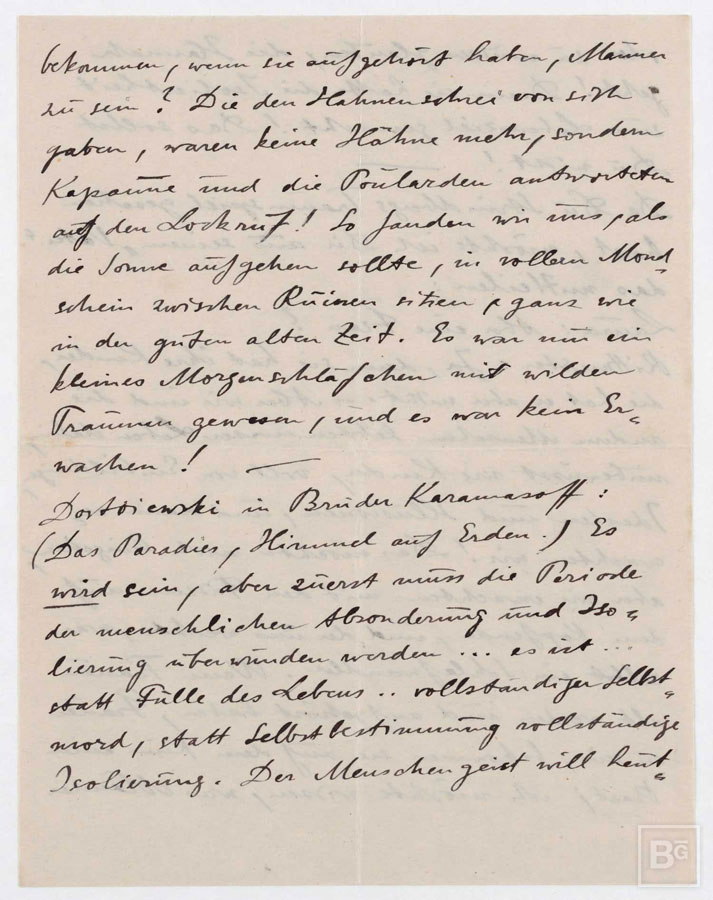 bekommen, wenn sie aufgehört haben, Männer
zu sein? Die den Hahnenschrei von sich
gaben, waren keine Hähne mehr, sondern
Kapaune und die Poularden antworteten
auf den Lockruf! So fanden wir uns, als
die Sonne aufgehen sollte, in vollem Mond„
schein zwischen Ruinen sitzen, ganz wie
in der guten alten Zeit. Es war nur ein
kleines Morgenschläfchen mit wilden
Träumen gewesen, und es war kein Er„
wachen! —
Dostoiewski in Brüder Karamasoff:
(Das Paradies, Himmel auf Erden.) Es
wird sein, aber zuerst muss die Periode
der menschlichen Absonderung und Iso„
lierung überwunden werden ... es ist ...
statt Fülle des Lebens .. vollständiger Selbst„
mord, statt Selbstbestimmung vollständige
Isolierung. Der Menschengeist will heut„
BG